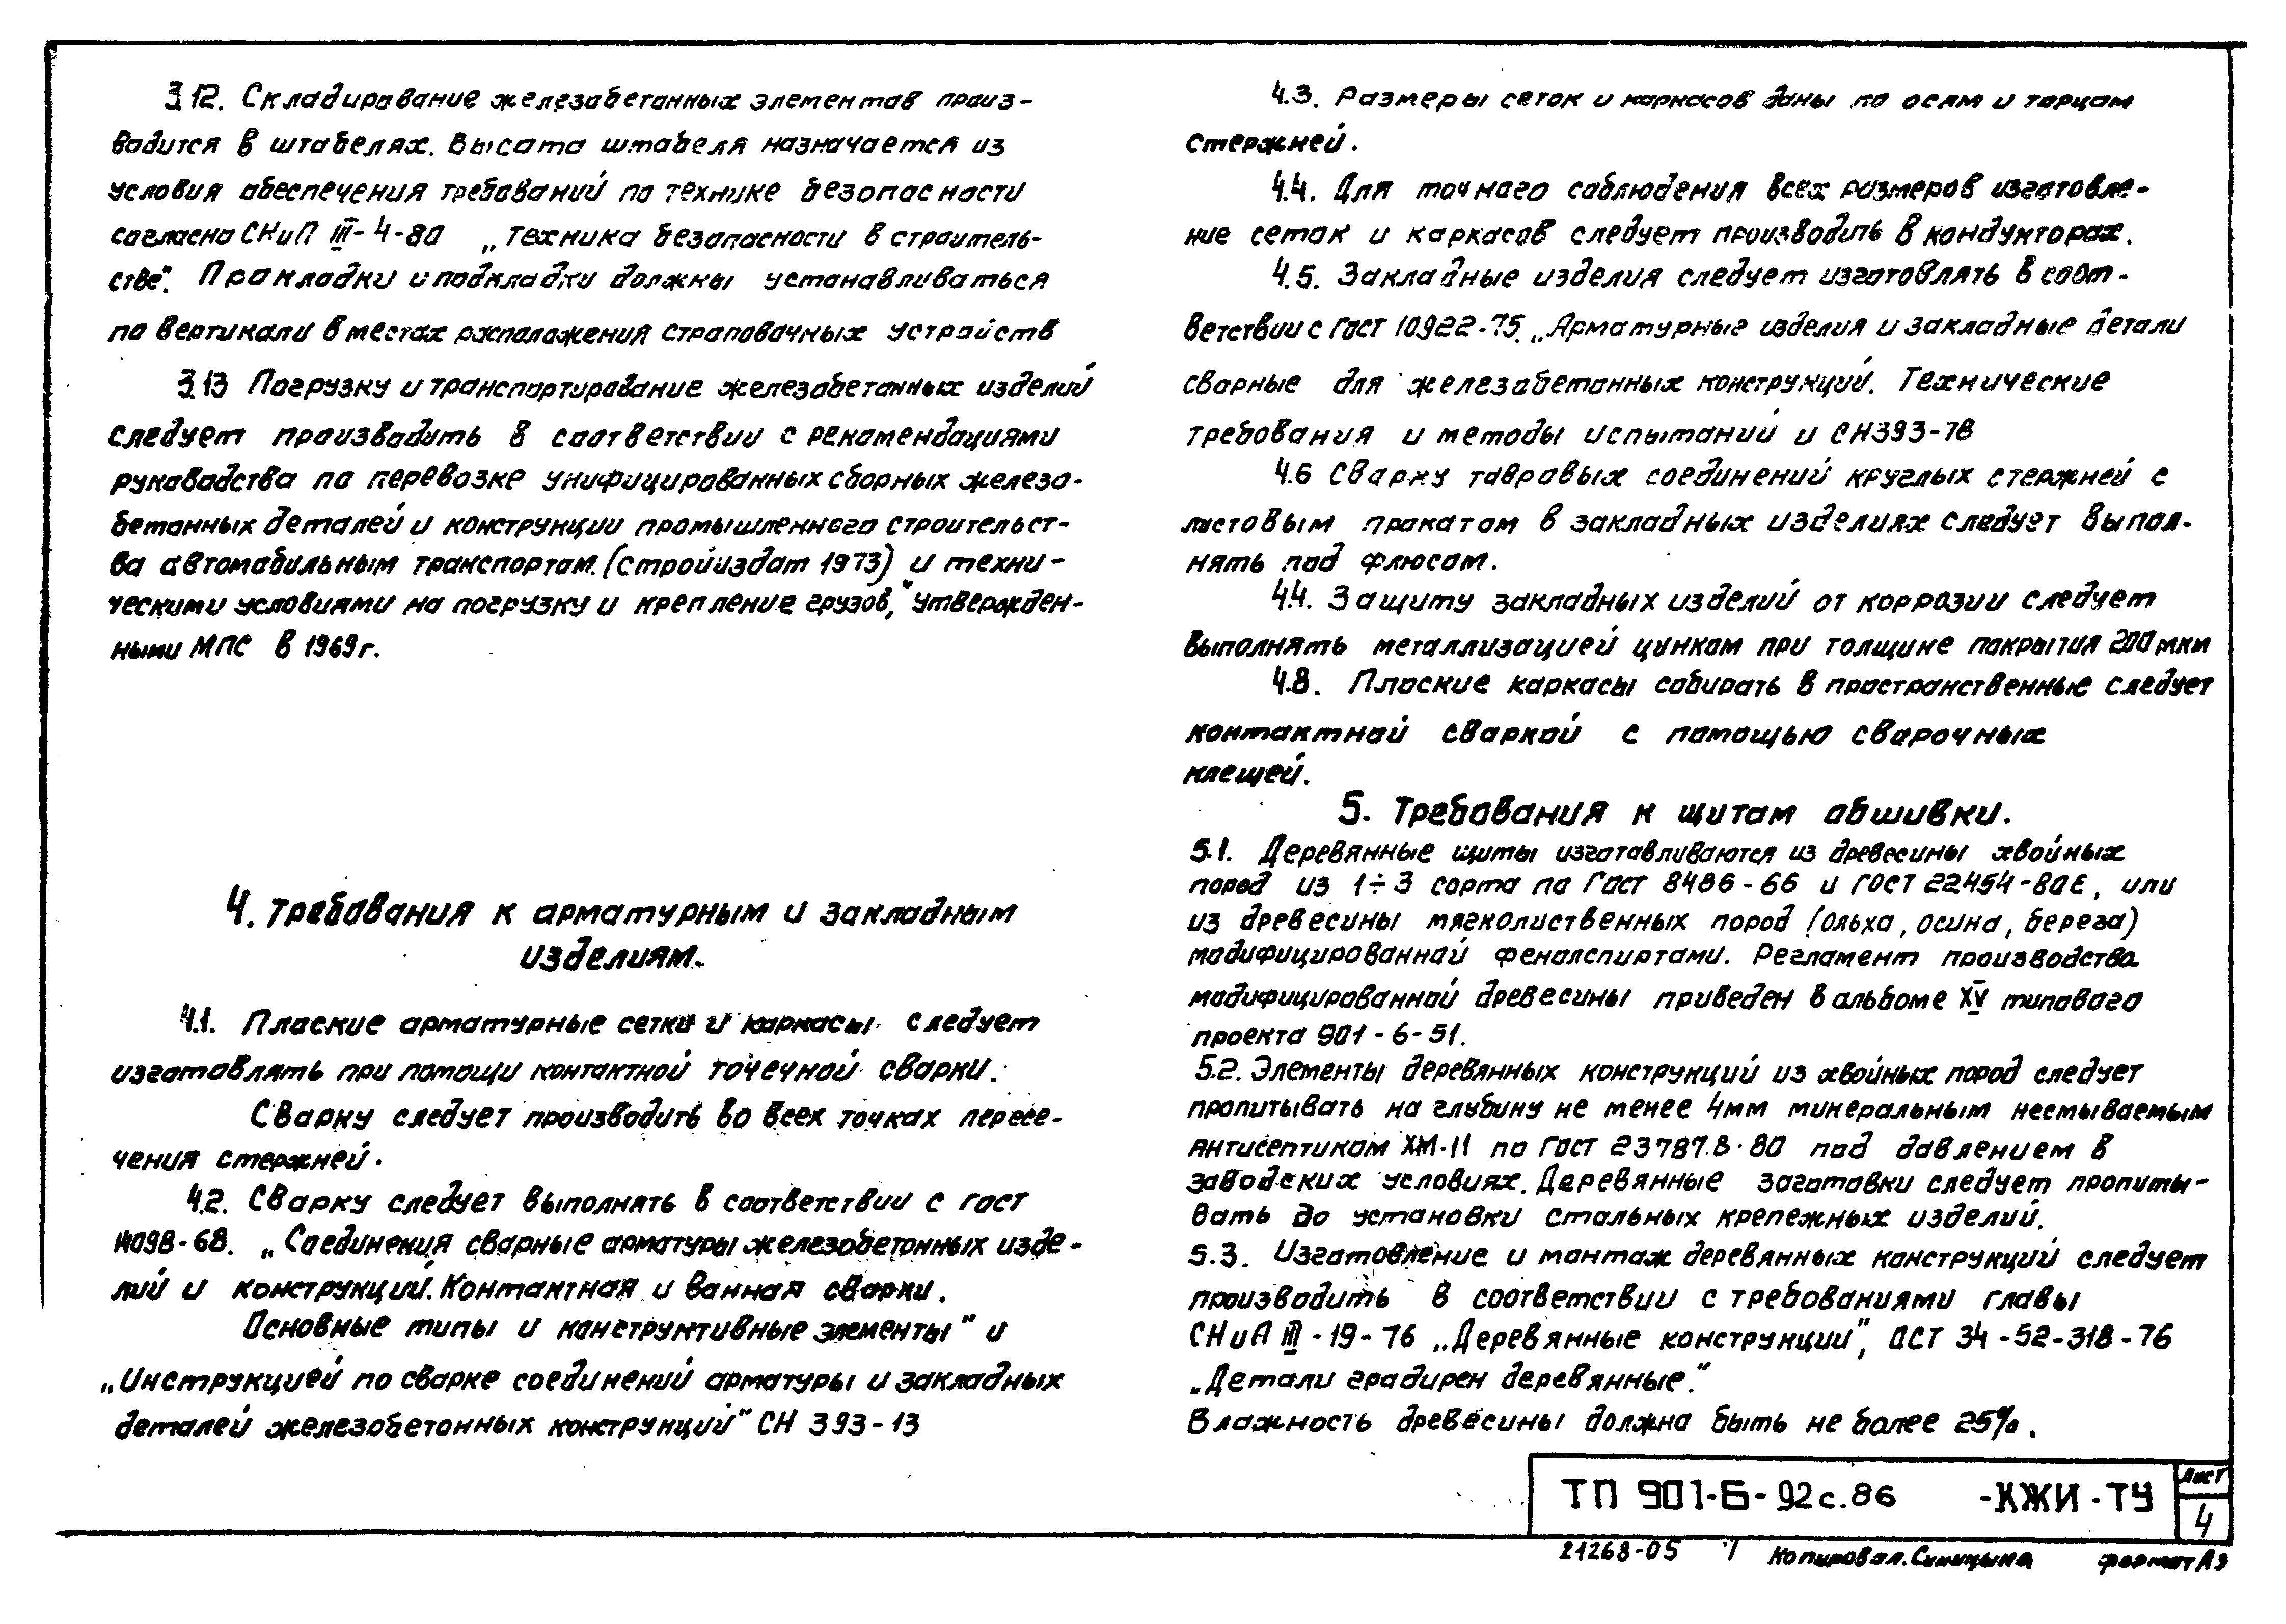 3.12. Складирование железобетонных элементов произ-
водится в штабелях. Высота штабеля назначается из
условия обеспечения требований по технике безопасности
согласно СНиП III-4-80 „Техника безопасности в строитель-
стве". Прокладки и подкладки должны устанавливаться
по вертикали в местах расположения строповочных устройств
3.13 Погрузку и транспортирование железобетонных изделий
следует производить в соответствии с рекомендациями
руководства по перевозке унифицированных сборных железо-
бетонных деталей и конструкции промышленного строительст-
ва автомобильным транспортом. (Стройиздат 1973) и техни-
ческими условиями на погрузку и крепление грузов," утвержден-
ными МПС в 1969г.
4. Требования к арматурным и закладным
изделиям.
4.1. Плоские арматурные сетки и каркасы следует
изготовлять при помощи контактной точечной сварки.
Сварку следует производить во всех точках пересе-
чения стержней.
4.2. Сварку следует выполнять в соответствии с гост
14098-68. „Соединения сварные арматуры железобетонных изде-
лий и конструкций. Контактная и ванная сварки.
Основные типы и конструктивные элементы" и
„Инструкцией по сварке соединений арматуры и закладных
деталей железобетонных конструкций" СН 393-13
4.3. Размеры сеток и каркасов даны по осям и торцам
стержней.
4.4. Для точного соблюдения всех размеров изготовле-
ние сеток и каркасов следует производить в кондукторах.
4.5. Закладные изделия следует изготовлять в соот-
ветствии с гост 10922-75. „Арматурные изделия и закладные детали
сварные для железобетонных конструкций. Технические
требования и методы испытаний и СН393-78
4.6 Сварку тавровых соединений круглых стержней с
листовым прокатом в закладных изделиях следует выпол-
нять под флюсом.
4.4. Защиту закладных изделий от коррозии следует
выполнять металлизацией цинком при толщине покрытия 200мкм
4.8. Плоские каркасы собирать в пространственные следует
контактной сваркой с помощью сварочных
клещей.
5. Требования к щитам обшивки.
5.1. Деревянные щиты изготавливаются из древесины хвойных
пород из 1÷3 сорта по Гост 8486-66 и ГОСТ 22454-80Е, или
из древесины мягколиственных пород (ольха, осина, береза)
модифицированной фенолспиртами. Регламент производства
модифицированной древесины приведен в альбоме XV типового
проекта 901-6-51.
5.2. Элементы деревянных конструкций из хвойных пород следует
пропитывать на глубину не менее 4мм минеральным несмываемым
антисептиком ХМ-11 по Гост 23787.8-80 под давлением в
заводских условиях. Деревянные заготовки следует пропиты-
вать до установки стальных крепежных изделий.
5.3. Изготовление и монтаж деревянных конструкций следует
производить в соответствии с требованиями главы
СНиП III-19-76 „Деревянные конструкции", ОСТ 34-52-318-76
„Детали градирен деревянные."
Влажность древесины должна быть не более 25%.
ТП 901-6-92с.86 -КЖИ-ТУ
Лист
4
21268-05 7 Копировал.Синицына формат А3